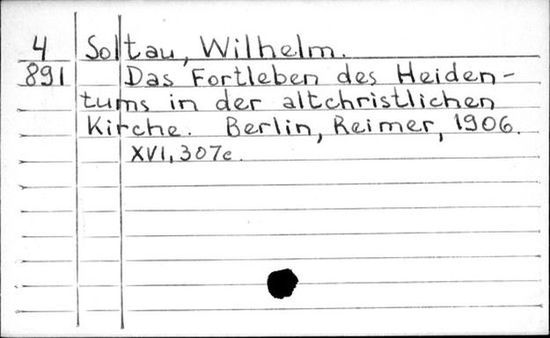 4 Soltau, Wilhelm.
891 Das Fortleben des Heiden-
tums in der altchristlichen
Kirche. Berlin, Reimer, 1906.
XVI, 307c.